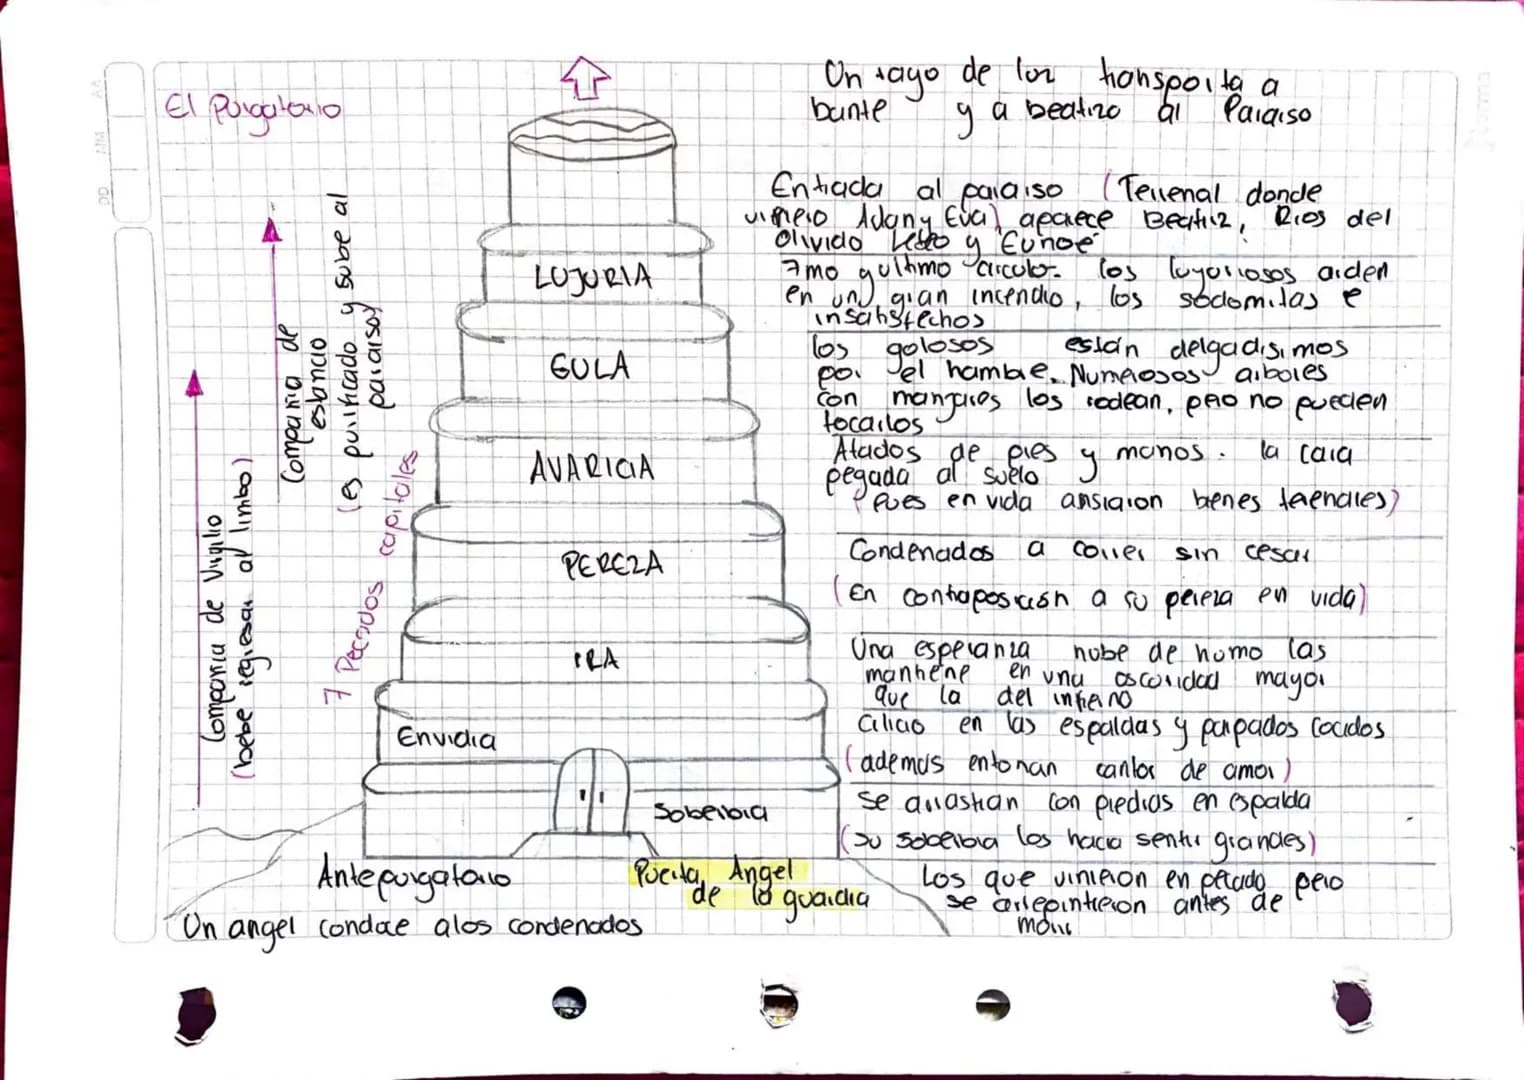 El Purgatorio
Un rayo de luz transporta a
Dante y a beatriz al Paraiso
Entrada al paraiso (Terrenal donde
vivieron Adan y Eva) aparece Beatriz, Rios del
Olivido Leteo y Eunoe
LUJURIA
7mo y ultimo circulo- los lujuriosos arden
en un gran incendio, los sodomitas e
insatisfechos
GULA
los golosos están delgadisimos
por el hambre. Numerosos arboles
con manjares los rodean, pero no pueden
tocarlos
AVARICIA
Atados de pies y manos. la cara
pegada al suelo
(Pues en vida ansiaron bienes terenales)
PEREZA
Condenados a correr sin cesar
(En contraposición a su pereza en vida)
IRA
Una esperanza nube de humo las
mantiene en una oscuridad mayor
que la del infierno
Envidia
Cilicio en las espaldas y parpados cocidos
(ademas entonan cantos de amor)
Soberbia
Se arrastran con piedras en espalda
(su soberbia los hacia sentir grandes)
Antepurgatorio
Puerta, Angel
de la guardia
Los que vivieron en pecado pero
se arrepintieron antes de
morir
Un angel conduce a los condenados
Compañia de Virgilio
(debe regresar al limbo)
Compania de
estancio
(es purificado y sube al
paraiso)
7 Pecados capitales
DD MM AA
Norma